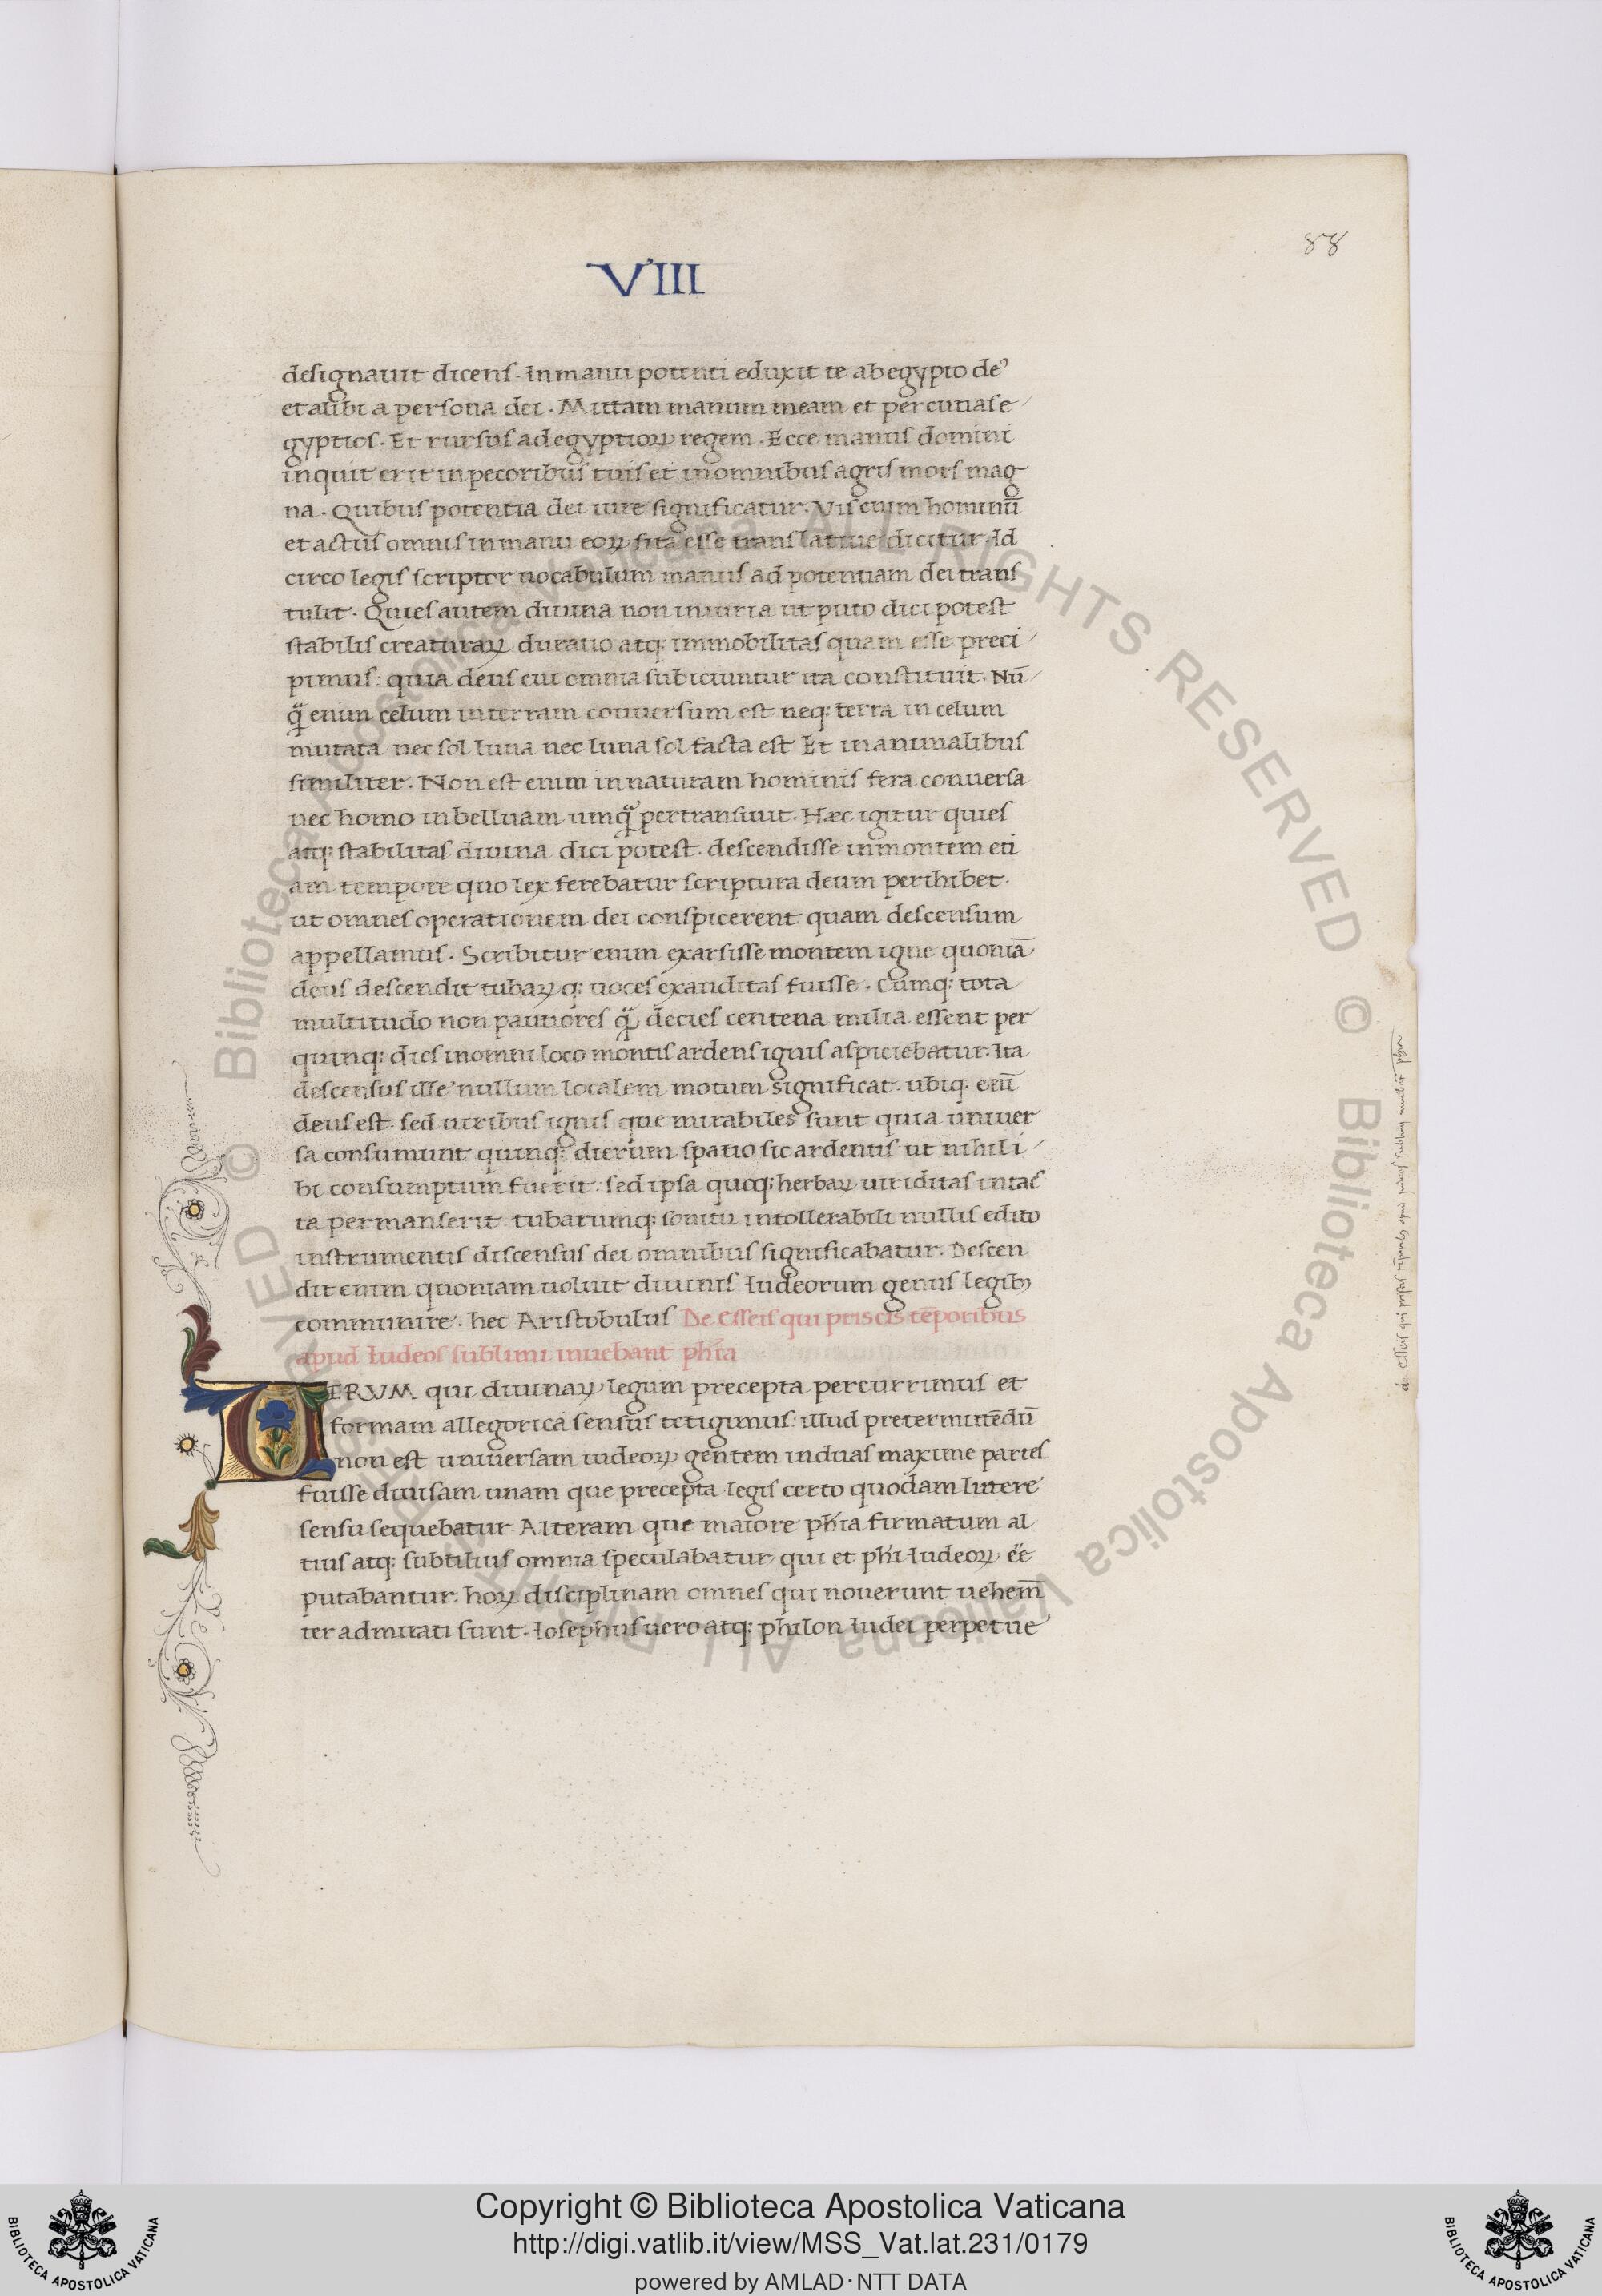 88
VIII
designauit dicens. In manu potenti eduxit te ab egypto deꝰ
et alibi a persona dei. Mittam manum meam et percutias e
gyptios. Et rursus ad egyptioꝝ regem. Ecce manus domini
inquit erit in pecoribus tuis et in omnibus agris mors mag
na. Quibus potentia dei iure significatur. Vis enim hominū
et actus omnis in manu eoꝝ sita esse translatiue dicitur. Id
circo legis scriptor uocabulum manus ad potentiam dei trans
tulit. Quies autem diuina non iniuria ut puto dici potest
stabilis creaturaꝝ duratio atq; immobilitas quam esse preci
pimus: quia deus cui omnia subiciuntur ita constituit. Nū
ꝗ̃ enim celum in terram conuersum est neq; terra in celum
mutata nec sol luna nec luna sol facta est Et in animalibus
similiter. Non est enim in naturam hominis fera conuersa
nec homo in belluam umꝗ̃ pertransiuit. Hæc igitur quies
atq; stabilitas diuina dici potest. descendisse in montem eti
am tempore quo lex ferebatur scriptura deum perihibet.
ut omnes operationem dei conspicerent quam descensum
appellamus. Scribitur enim exarsisse montem igne quoniā
deus descendit tubaꝝ q; uoces exauditas fuisse. Cumq; tota
multitudo non pautiores ꝗ̃ decies centena milia essent per
quinq; dies in omni loco montis ardens ignis aspiciebatur. Ita
descensus ille nullum localem motum significat. ubiq; eni̅
deus est. sed uiribus ignis que mirabiles sunt quia uniuer
sa consumunt quinq; dierum spatio sic ardentis ut nihil i
bi consumptum fuerit: sed ipsa quoq; herbaꝝ uiriditas intac
ta permanserit tubarumq; sonitu intollerabili nullis edito
instrumentis discensus dei omnibus significabatur. Descen
dit enim quoniam uoluit diuinis Iudeorum genus legibꝫ
communire. hec Aristobulus De Esseis qui priscis tēporibus
apud Iudeos sublimi inuebant phīa
VERVM qui diuinaꝝ legum precepta percurrimus et
formam allegoricā sensus tetigimus: illud pretermitēdū
non est uniuersam iudeoꝝ gentem in duas maxime partes
fuisse diuisam unam que precepta legis certo quodam litere
sensu sequebatur Alteram que maiore phīa firmatum al
tius atq; subtilius omnia speculabatur qui et phi Iudeoꝝ eē
putabantur. hoꝝ disciplinam omnes qui nouerunt uehem̅
ter admirati sunt. Iosephus uero atq; philon Iudei perpetue
© Biblioteca Apostolica Vaticana ALL RIGHTS RESERVED
© Biblioteca Apostolica Vaticana ALL RIGHTS RESERVED
Copyright © Biblioteca Apostolica Vaticana
http://digi.vatlib.it/view/MSS_Vat.lat.231/0179
powered by AMLAD·NTT DATA
BIBLIOTECA APOSTOLICA VATICANA
BIBLIOTECA APOSTOLICA VATICANA